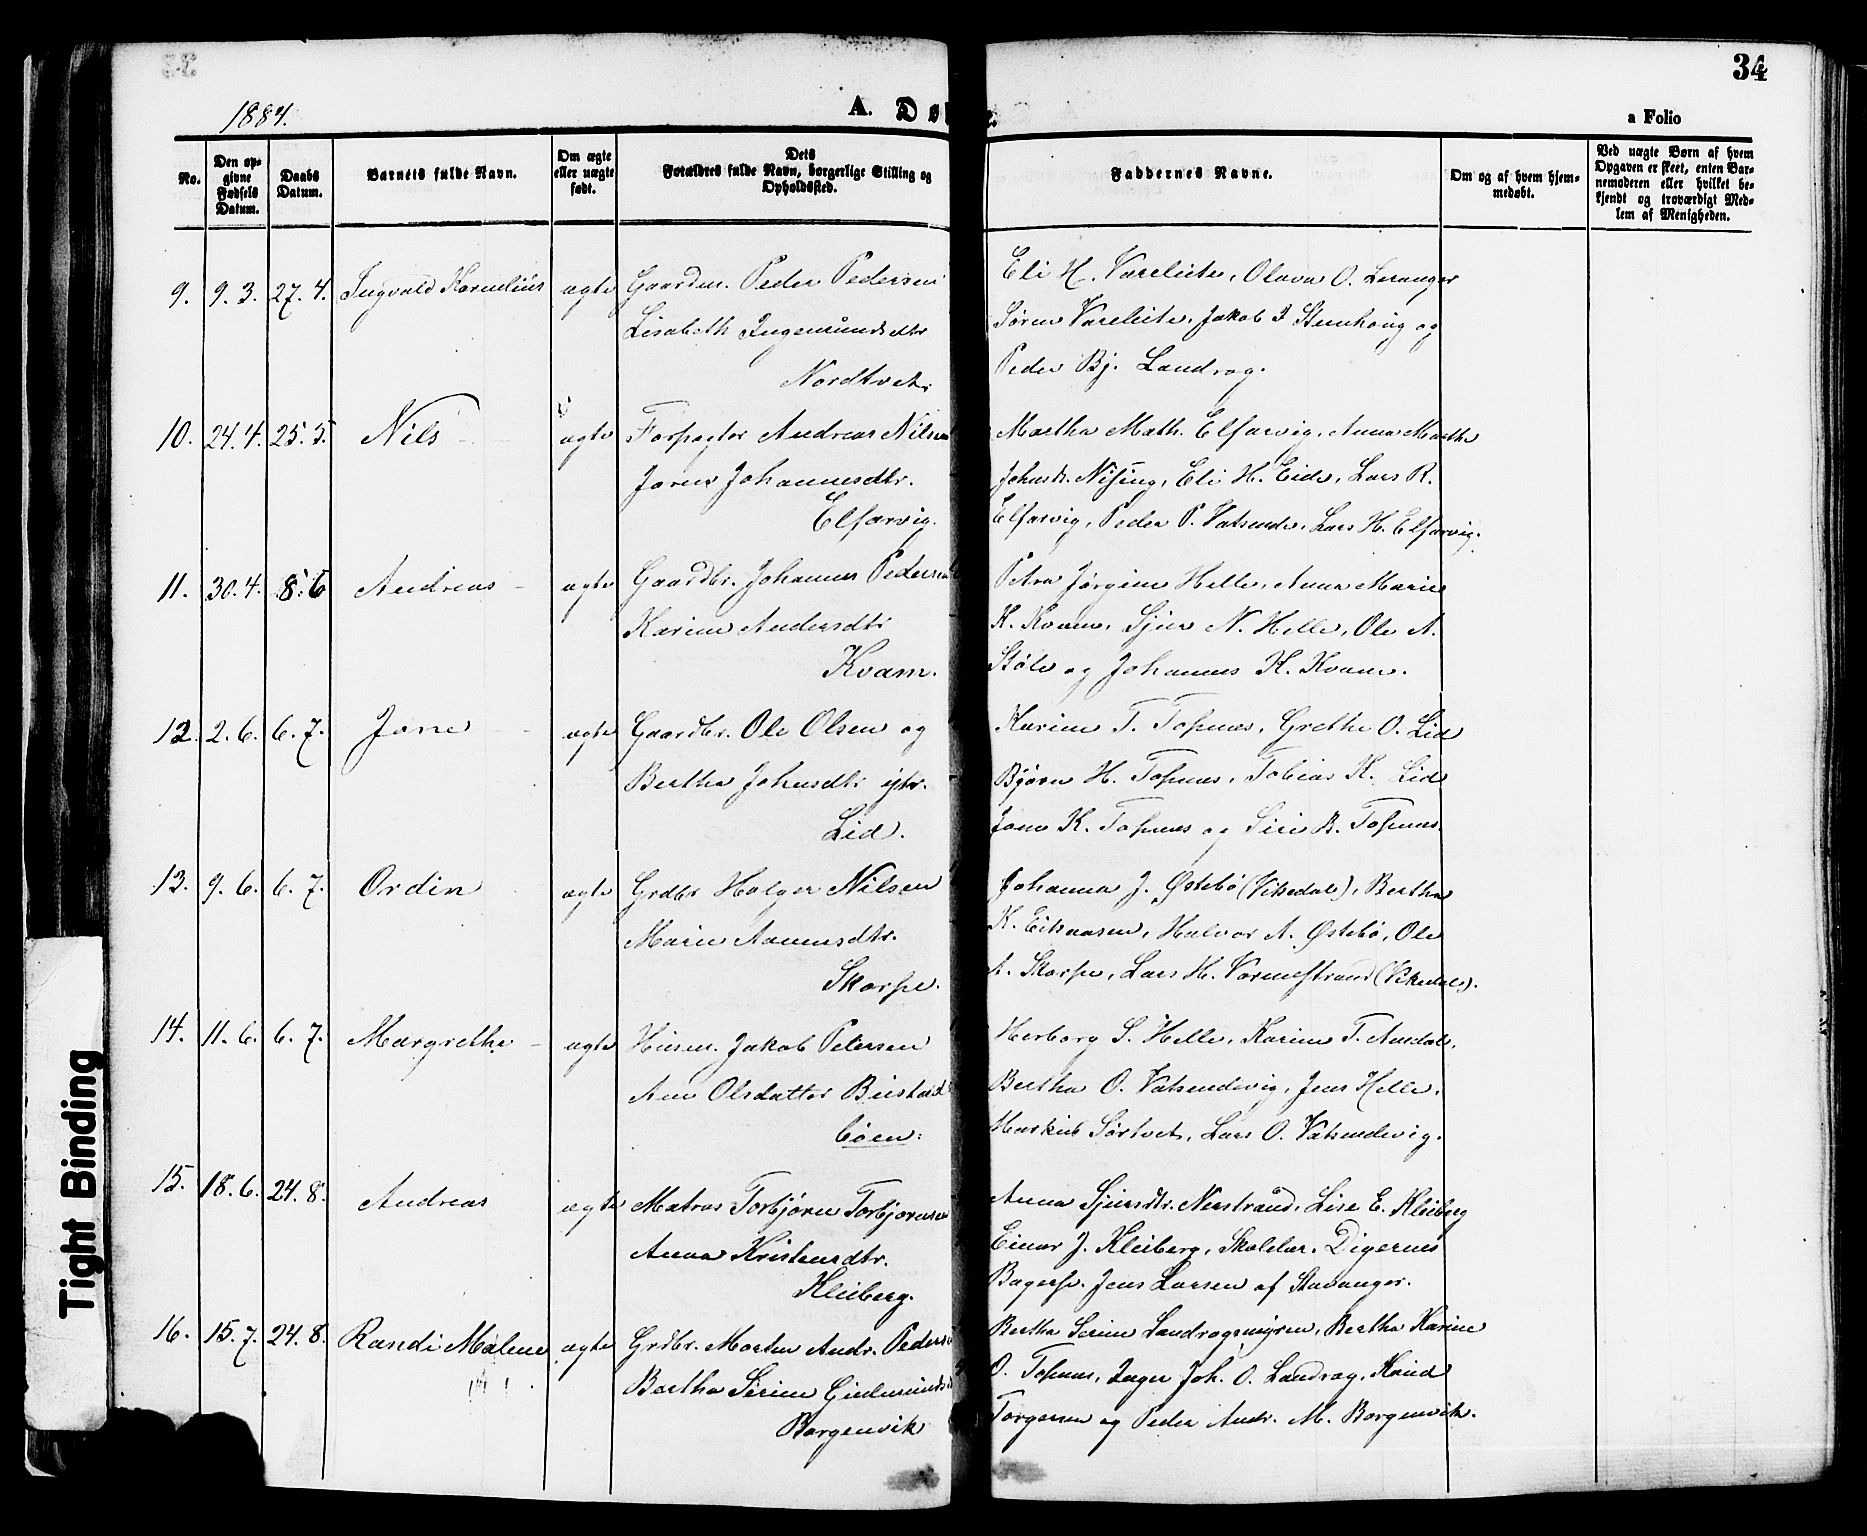 34
1884.
A. Døb
a Folio
No.
Den op-
givne
Fødsels
Datum.
Daabs
Datum.
Barnets fulde Navn.
Om ægte
eller uægte
født.
Dets
Forældres fulde Navn, borgerlige Stilling og
Opholdssted.
Faddernes Navne.
Om og af hvem hjem-
medøbt.
Ved uægte Børn af hvem
Opgaven er skeet, enten Bar-
nemoderen eller hvilket be-
kjendt og troværdigt Med-
lem af Menigheden.
9. 9. 3. 27. 4. Ingvald Kornelius ægte Gaardm. Peder Pedersen
Lisabeth Ingemundsdtr
Nordtvet.
Eli H. Vareleite, Olava O. Leranger
Søren Vareleite, Jakob I Stenhoug og
Peder Bj. Landrag.
10. 24. 4. 25. 5. Nils ægte Forpagter Andreas Nilsen
Johannesdtr.
Elfarvig.
Martha Math. Elfarvig, Anna Marthe
Johnsdt. Eli H. Eide, Lars R.
Elfarvig, Peder P. Vatsende, Lars H. Elfarvig.
11. 30. 4. 8. 6 Andreas ægte Gaardbr. Johannes Pedersen
Karine Andersdtr
Kvam.
Petra Jørgine Helle, Anna Marie
K. Kvam, Sjur N. Helle, Ole A.
Støle og Johannes H. Kvam.
12. 2. 6. 6. 7. Jone ægte Gaardbr. Ole Olsen og
Bertha Johnsdtr
Lid.
Karine T. Topnes, Grethe O. Lid
Bjørn H. Topnes, Tobias K. Lid
Jone K. Topnes og Siri B. Topnes.
13. 9. 6. 6. 7. Ordin ægte Grdbr Holger Nilsen
Marie Aanensdtr.
Skorpe.
Johanna J. Østebø (Vikedal), Bertha
K. Halvor A. Østebø, Ole
A. Skorpe, Lars H. Vormestrand (Vikedal).
14. 11. 6. 6. 7. Margrethe ægte Husm. Jakob Petersen
Ane Olsdatter
bøen.
Herborg S. Helle, Karine T. Aasdal,
Bertha O. Vatsendevig, Jens Helle,
Sørtvet, Lars O. Vatsendevig.
15. 18. 6. 24. 8. Andreas ægte Matros Torbjørn Torbjørnsen
Anna Kristensdtr.
Kleiberg.
Anna Sjursdtr. Nerstrand, Lise E. Kleiberg
Einar J. Kleiberg, Skolelær. Digernes
Bagersv. Jens Larsen af Stavanger.
16. 15. 7. 24. 8. Randi Malene ægte Grdbr. Morten Andr. Pedersen
Bertha Serine
Borgenvik
Bertha Serine Landragsmyren, Bertha Karine
O. Topnes, Inger Joh. O. Landrag, Knud
Torgersen og Peder Andr. M. Borgenvik.
Tight Binding